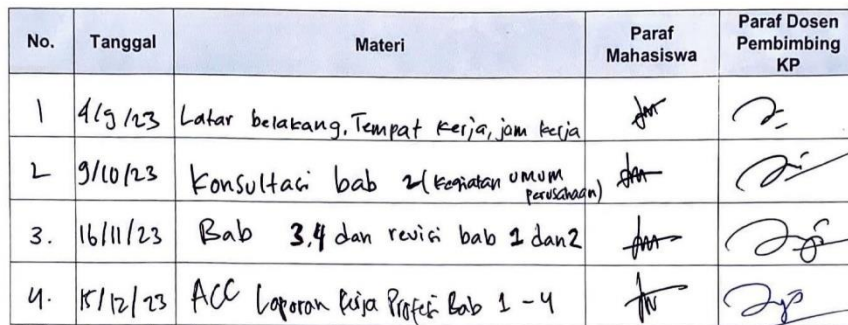 No. Tanggal Materi Paraf Mahasiswa Paraf Dosen Pembimbing KP
1 4/9/23 Latar belakang, Tempat kerja, jam kerja
2 9/10/23 Konsultasi bab 2 (kegiatan umum perusahaan)
3. 16/11/23 Bab 3.4 dan revisi bab 1 dan 2
4. 15/12/23 ACC Laporan Kerja Profesi Bab 1 - 4